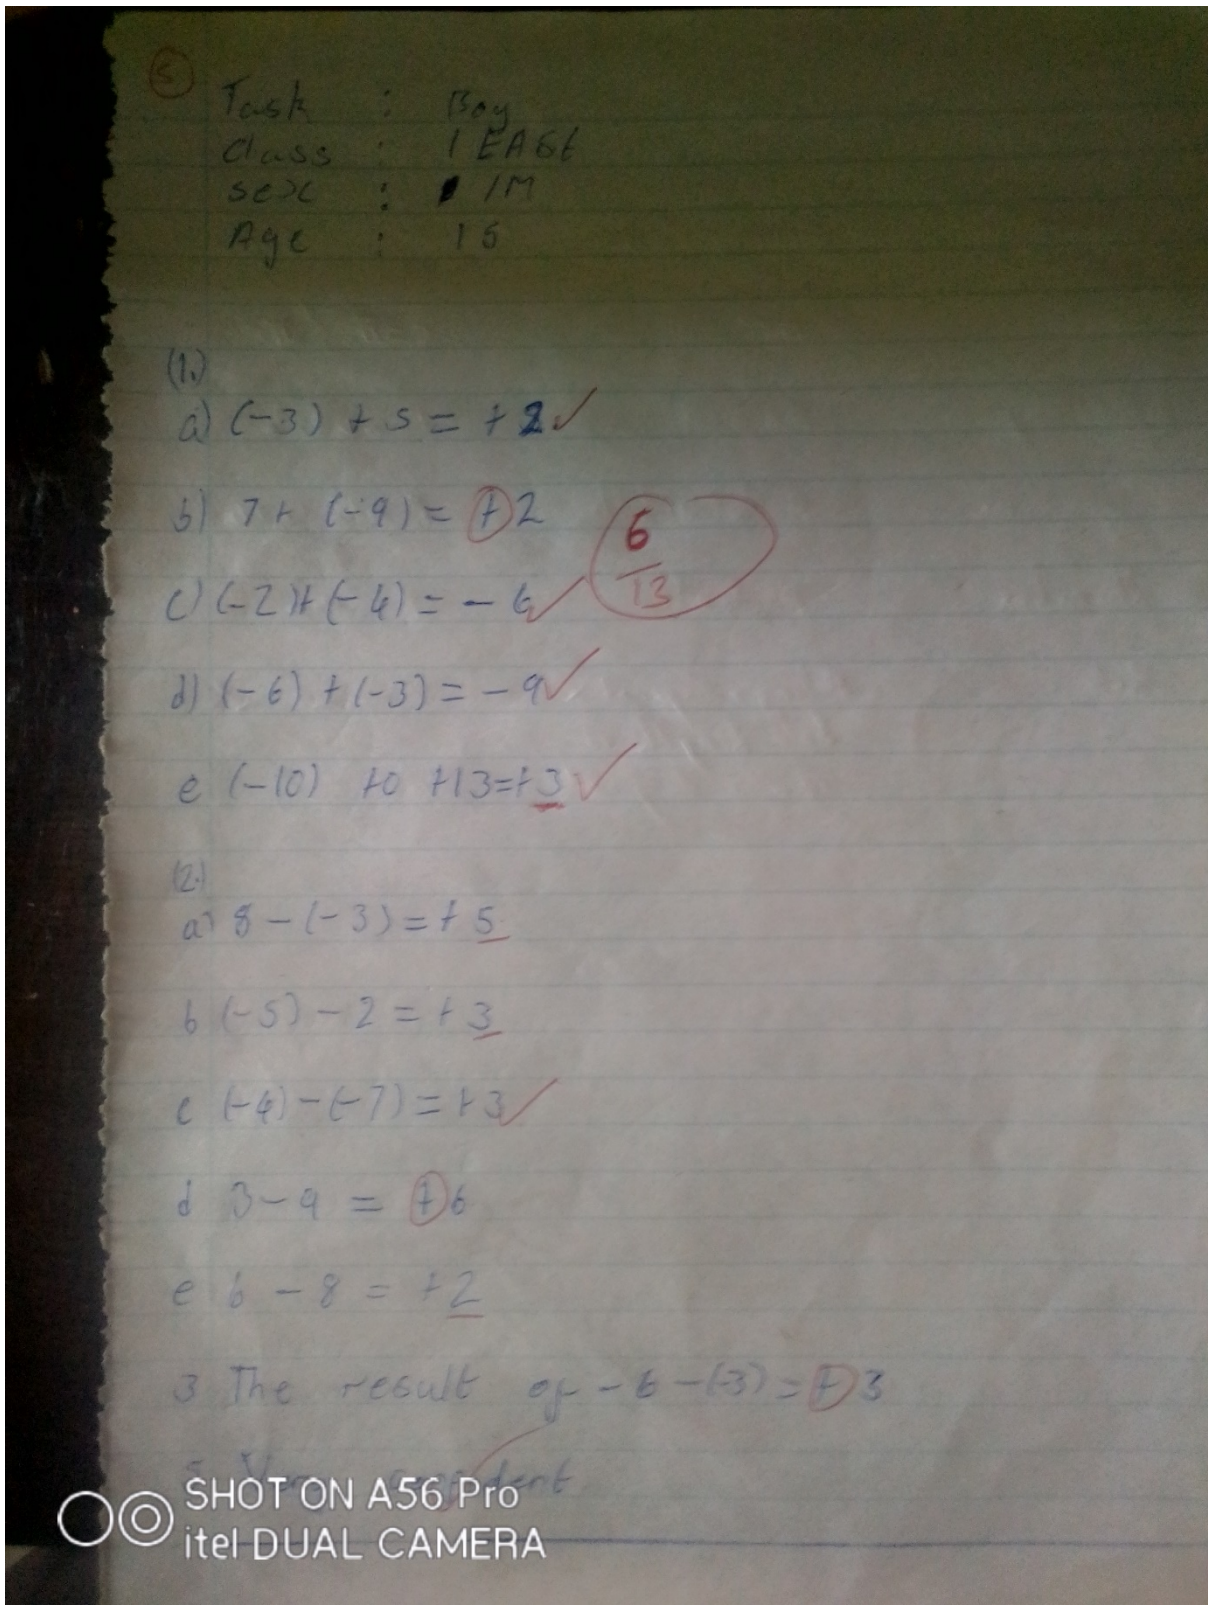 5
Task : Boy
Class : 1 EAST
Sex : 1M
Age : 15
(1.)
a) (-3) + 5 = +2
b) 7+ (-9) = +2
6
13
c) (-2)+(-4) = - 6
d) (-6) + (-3) = - 9
e (-10) to +13=+3
(2.)
a) 8 - (-3) = + 5
b (-5) - 2 = + 3
c (-4) - (-7) = +3
d 3 - 9 = +6
e 6 - 8 = +2
3 The result of - 6 - (-3) = + 3
5 Very confident
SHOT ON A56 Pro
itel DUAL CAMERA